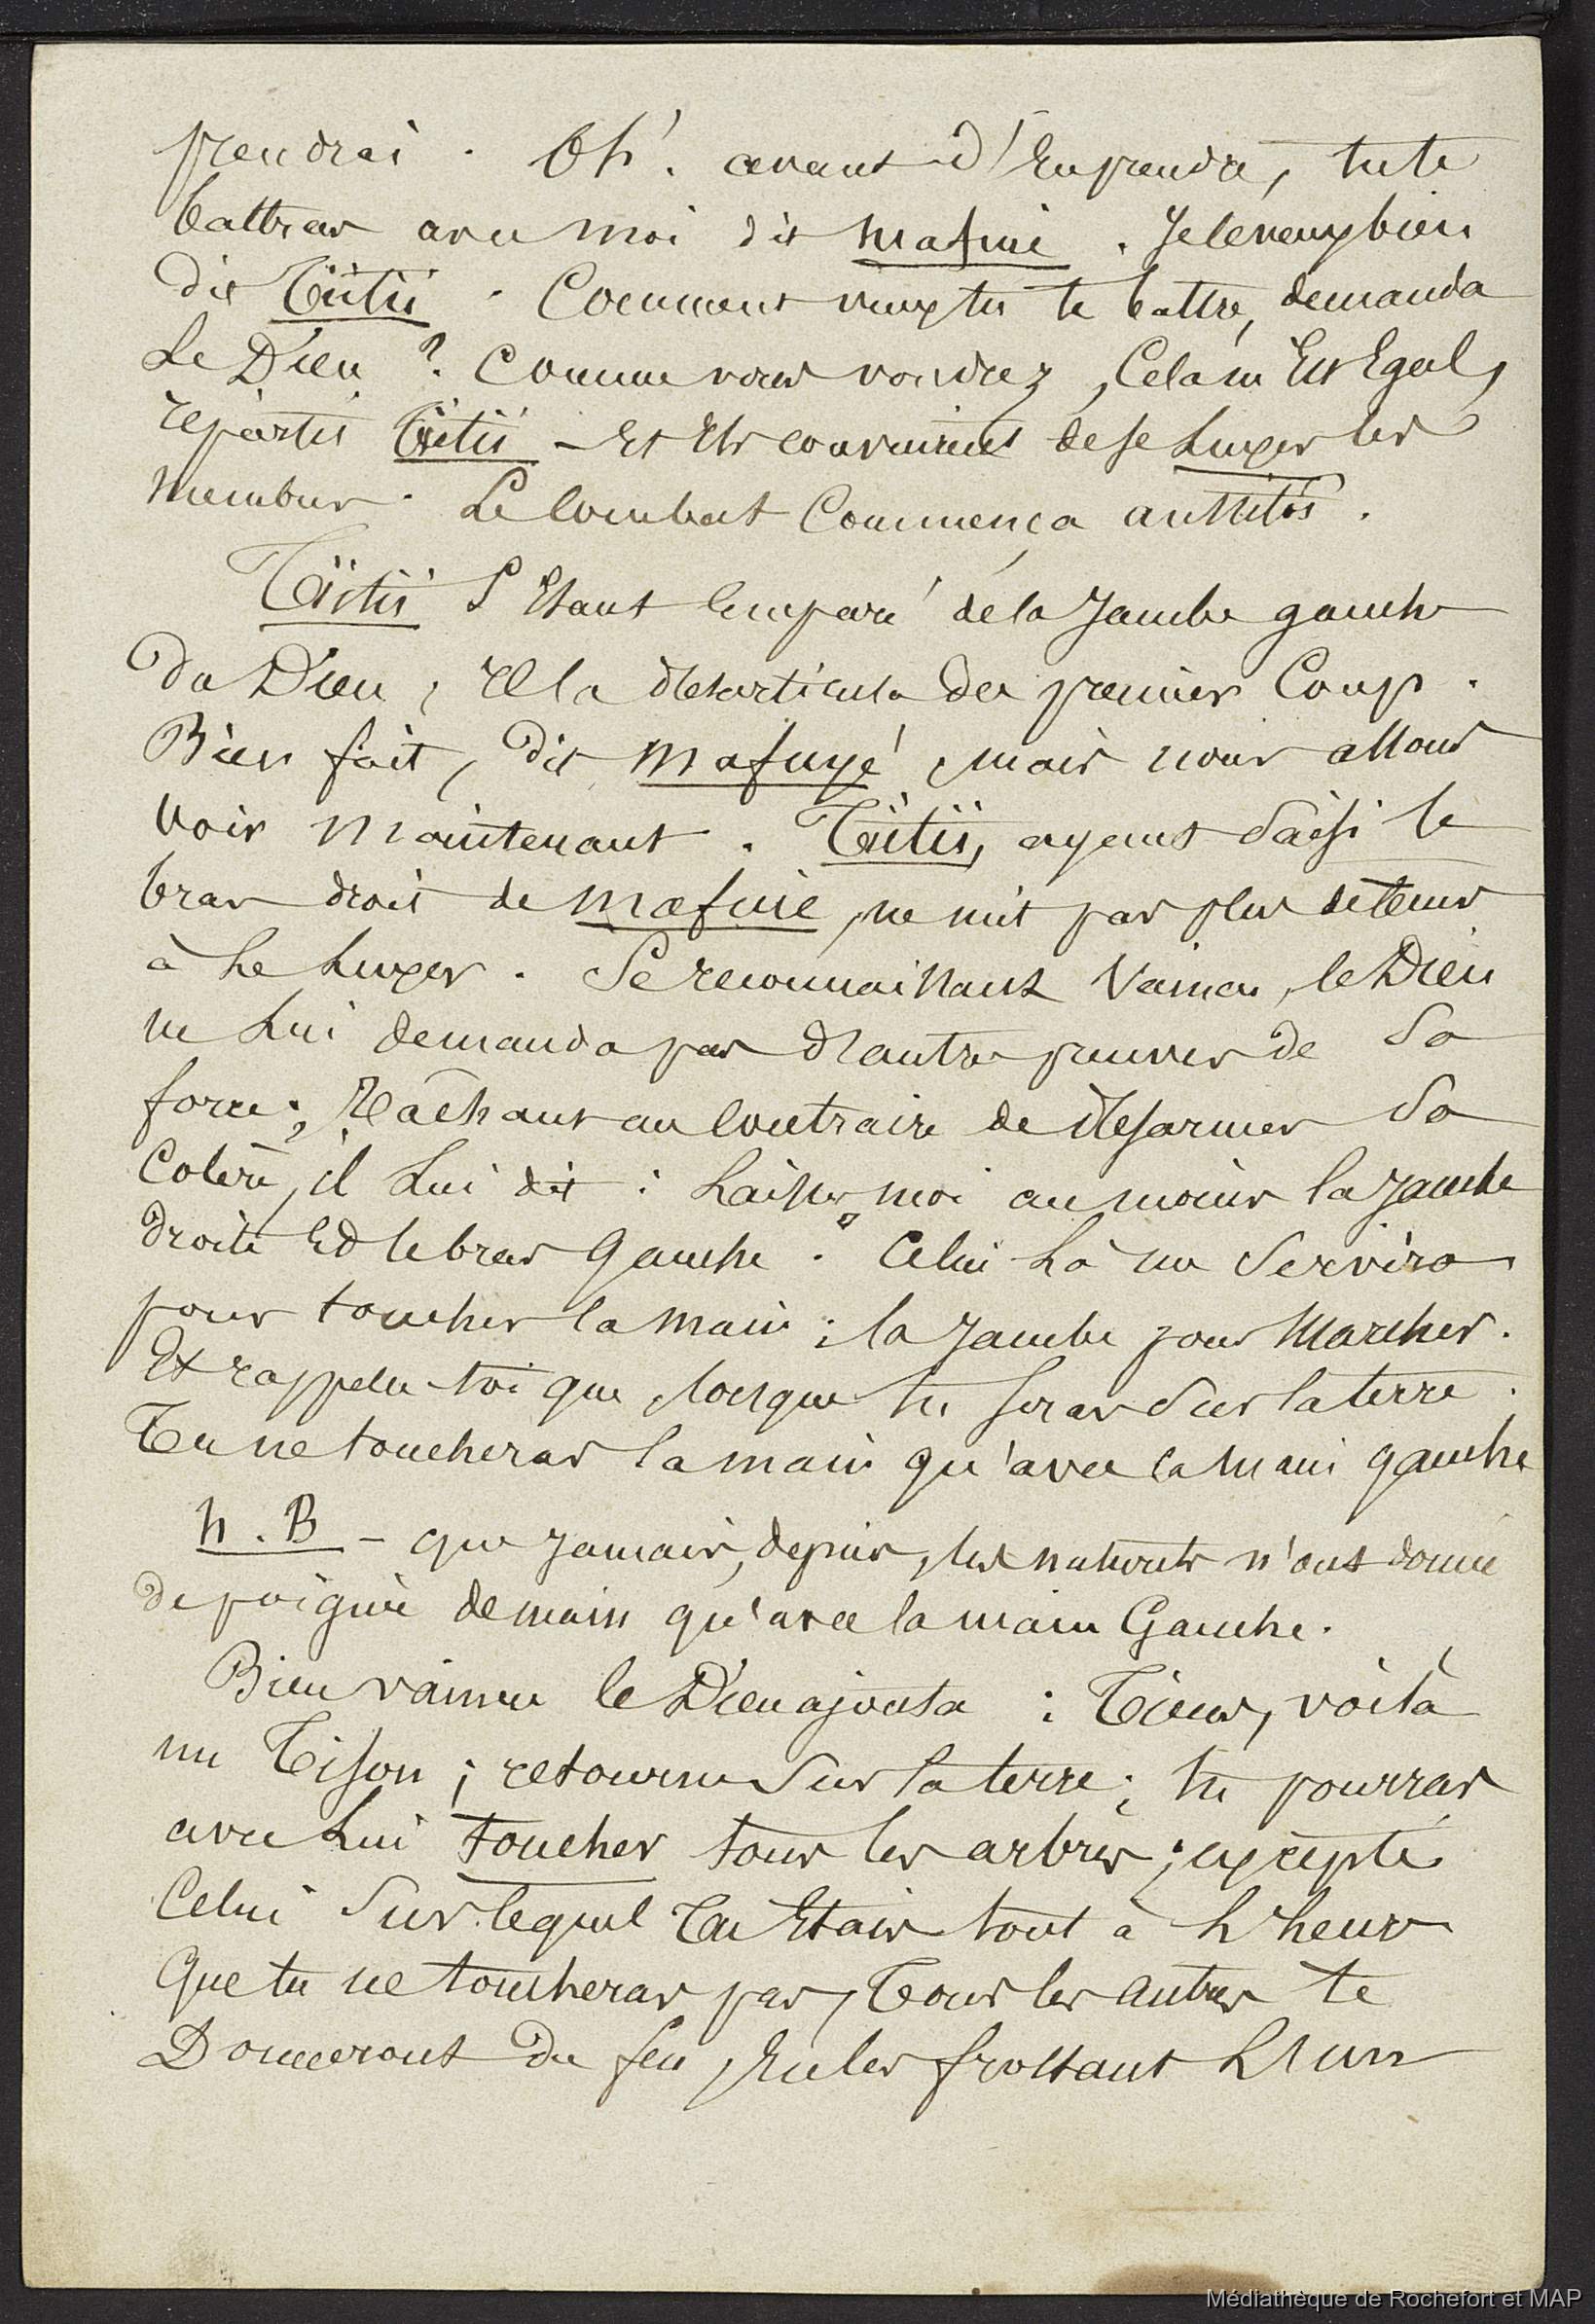 prendrai . Oh! avant d'en prendre, tu te
battras avec moi dit Mafuié . Je le veux bien
dit Tütii . Comment veux tu te battre, demanda
Le Dieu ? Comme vous voudrez , Cela m'Est Egal,
repartit Tütii – Et Ils convinrent de se Luxer les
Membres . Le Combat Commença aussitôt .
Tiitii S'Etant Emparé de la Jambe gauche
du Dieu , Il la desarticula du premier Coup .
Bien fait, dit Mafuyé , mais nous allons
Voir Maintenant . Tütii, ayant Saisi le
bras droit de Mafuié , ne mit pas plus de tems
à Le Luxer . Se reconnaissant Vaincu , le Dieu
ne Lui demanda pas d'autres preuves de Sa
force ; Tâchant au Contraire de desarmer Sa
Colère, il Lui dit : Laisses moi au moins la Jambe
droite Et le bras Gauche . Celui Là me Servira
pour toucher la Main ; la Jambe pour Marcher .
Et rappelle toi que , lorsque tu seras Sur la terre .
Tu ne toucheras la main qu'avec la Main gauche
N . B – que Jamais, depuis , les naturels n'ont donné
de poignée de main qu'avec la main Gauche .
Bien vaincu le Dieu ajouta : Tiens, voilà
un Tison ; retourne Sur la terre ; tu pourras
avec Lui toucher tous les arbres ; excepté
Celui Sur lequel Tu Etais tout à L'heure
Que tu ne toucheras pas , Tous les Autres te
Donneront du feu , En les frottant L'un
Médiathèque de Rochefort et MAP